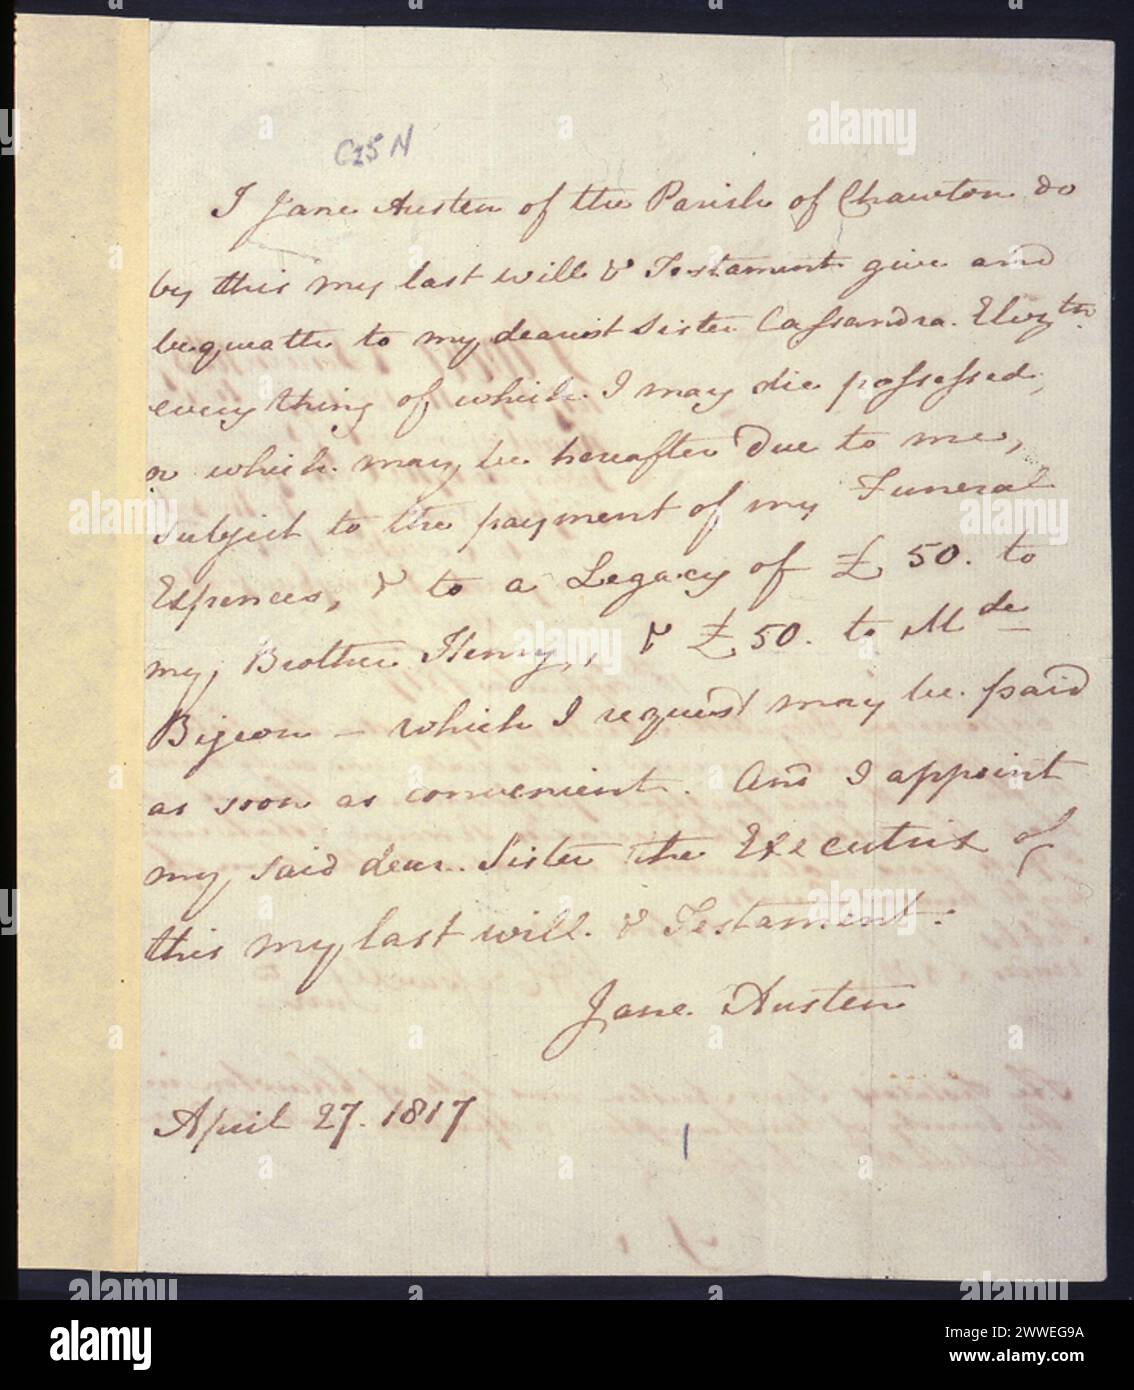 C25 N
I Jane Austen of the Parish of Chawton do
by this my last will & Testament give and
bequeathe to my dearest Sister Cassandra Elizth.
every thing of which I may die possessed,
or which may be hereafter due to me,
subject to the payment of my Funeral
Expences, & to a Legacy of £50. to
my Brother Henry, & £50. to Mde
Bigeon - which I request may be paid
as soon as convenient. And I appoint
my said dear Sister the Executrix of
this my last will & Testament.
Jane Austen
April 27. 1817
1
alamy
Image ID: 2WWEG9A
www.alamy.com